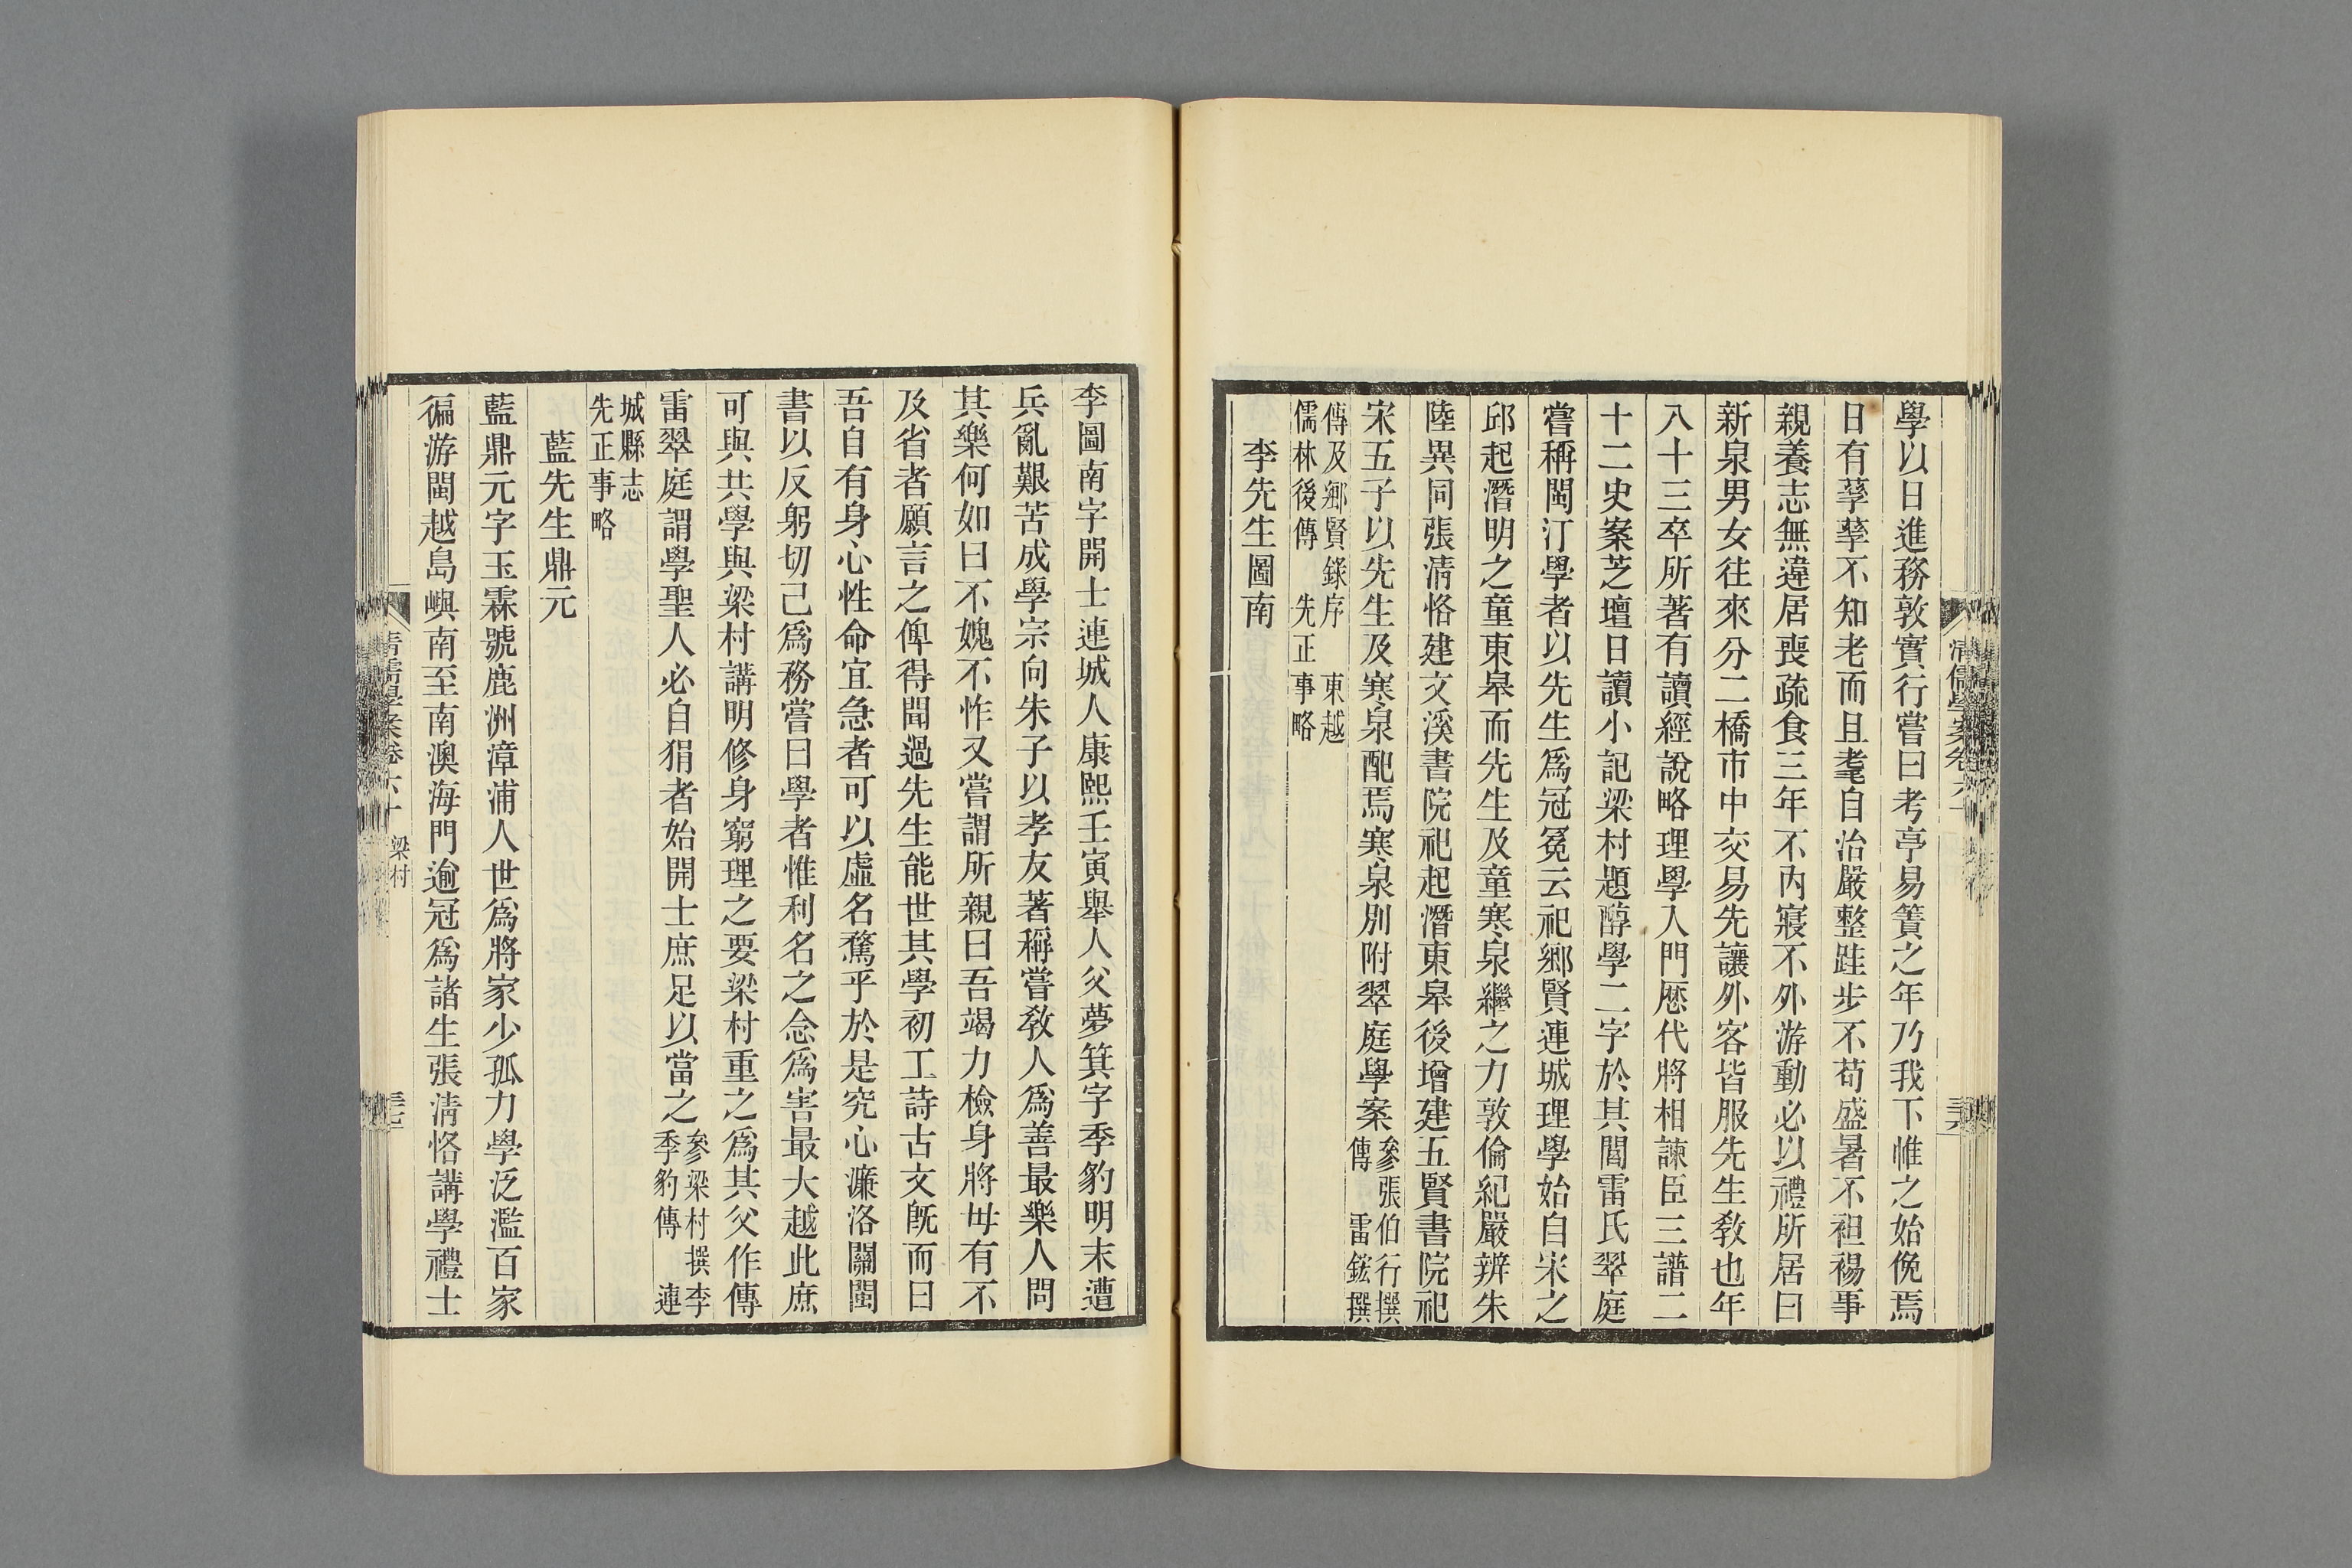 學以日進務敦實行嘗曰考亭易簀之年乃我下惟之始俛焉
日有孳孳不知老而且耄自治嚴整跬步不苟盛暑不袒裼事
親養志無違居喪疏食三年不內寢不外游動必以禮所居曰
新泉男女往來分二橋市中交易先讓外客皆服先生敎也年
八十三卒所著有讀經說略理學入門歷代將相諫臣三譜二
十二史案芝壇日讀小記梁村題醇學二字於其閭雷氏翠庭
嘗稱閩汀學者以先生爲冠冕云祀鄉賢連城理學始自宋之
邱起潛明之童東皋而先生及童寒泉繼之力敦倫紀嚴辨朱
陸異同張清恪建文溪書院祀起潛東皋後增建五賢書院祀
宋五子以先生及寒泉配焉寒泉別附翠庭學案
參張伯行撰
傳 雷鋐撰
傳及鄉賢錄序 東越
儒林後傳 先正事略
李先生圖南
清儒學案卷六十
三六
李圖南字開士連城人康熙壬寅舉人父夢箕字季豹明末遭
兵亂艱苦成學宗向朱子以孝友著稱嘗敎人爲善最樂人問
其樂何如曰不媿不怍又嘗謂所親曰吾竭力檢身將毋有不
及省者願言之俾得聞過先生能世其學初工詩古文旣而曰
吾自有身心性命宜急者可以虛名騖乎於是究心濂洛關閩
書以反躬切己爲務嘗曰學者惟利名之念爲害最大越此庶
可與共學與梁村講明修身窮理之要梁村重之爲其父作傳
雷翠庭謂學聖人必自狷者始開士庶足以當之
參梁村撰李
季豹傳 連
城縣志
先正事略
藍先生鼎元
藍鼎元字玉霖號鹿洲漳浦人世爲將家少孤力學泛濫百家
徧游閩越島嶼南至南澳海門逾冠爲諸生張清恪講學禮士
清儒學案卷六十 梁村
三七